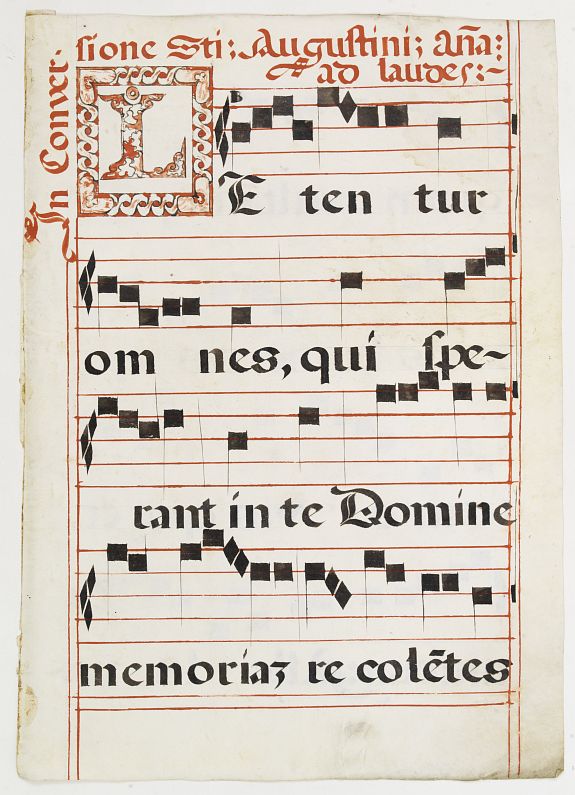 In Conver-
sione Sti: Augustini; añã:
ad laudes:~
LE ten tur
om nes, qui spe~
rant in te Domine
memoriaʒ re colẽtes